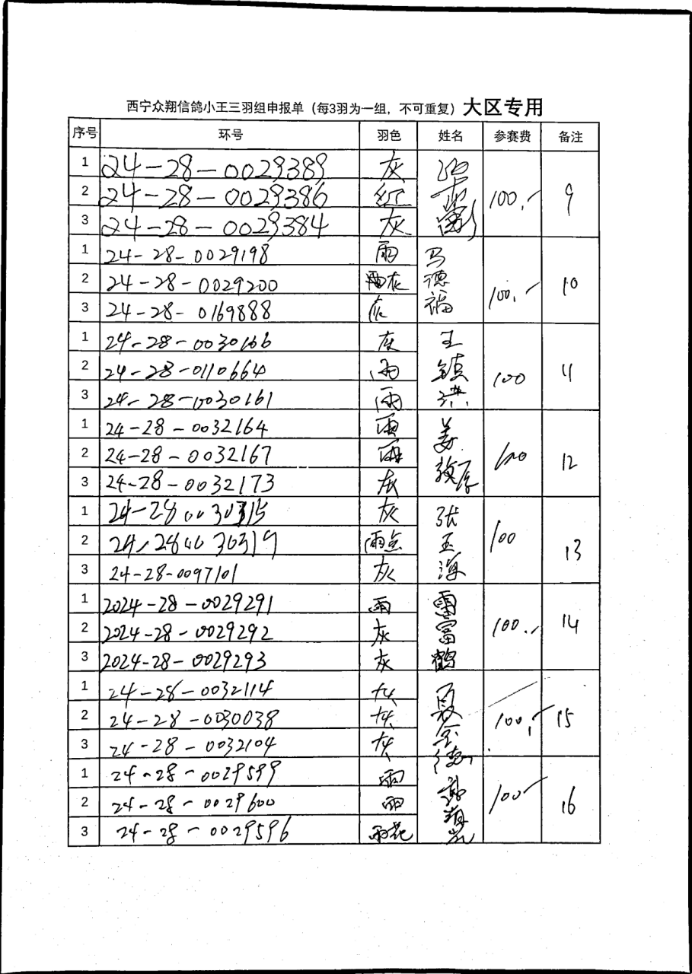 西宁众翔信鸽小王三羽组申报单（每3羽为一组，不可重复）大区专用
序号 环号 羽色 姓名 参赛费 备注
1 24-28-0029389 灰 100.- 9
2 24-28-0029386 红
3 24-28-0029384 灰
1 24-28-0029198 雨 马德福 100.- 10
2 24-28-0029200 雨灰
3 24-28-0169888 灰
1 24-28-0030166 灰 王镇洪 100 11
2 24-28-0110664 雨
3 24-28-0030161 雨
1 24-28-0032164 雨 姜 100 12
2 24-28-0032167 雨
3 24-28-0032173 灰
1 24-28 0030315 灰 张玉海 100 13
2 24-28 0030319 雨点
3 24-28-0097101 灰
1 2024-28-0029291 雨 雷富鹤 100.- 14
2 2024-28-0029292 灰
3 2024-28-0029293 灰
1 24-28-0032114 灰 100.- 15
2 24-28-0030038 灰
3 24-28-0032104 灰
1 24-28-0029599 雨 100 16
2 24-28-0029600 雨
3 24-28-0029596 雨花